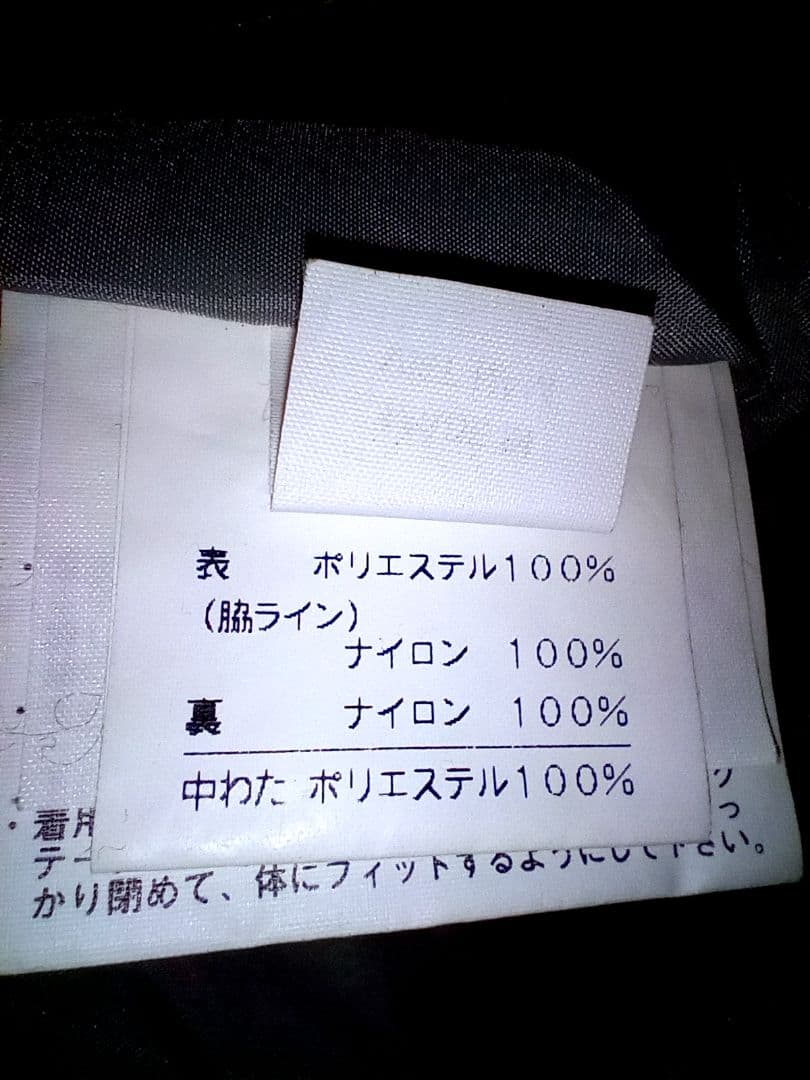 表 ポリエステル100%
(脇ライン)
ナイロン 100%
裏 ナイロン 100%
中わた ポリエステル100%
着用
テー
っ
かり閉めて、体にフィットするようにして下さい。